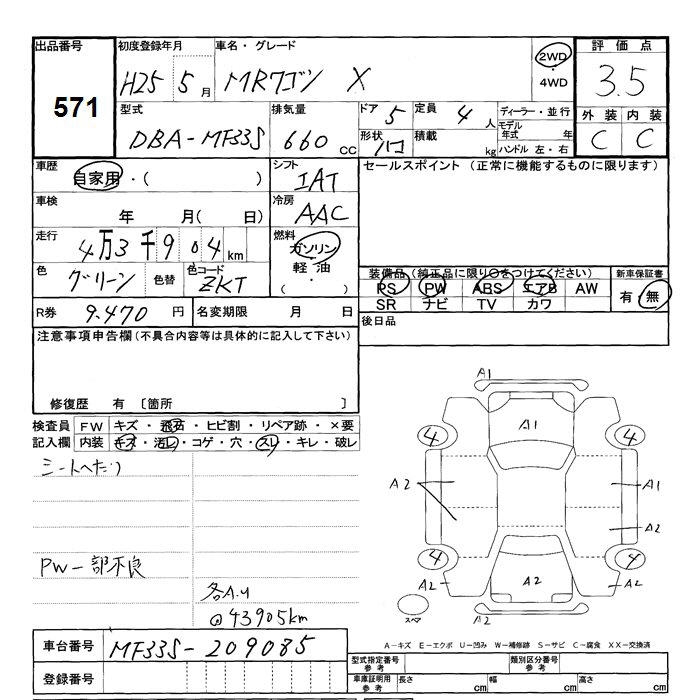 出品番号 初度登録年月 車名・グレード 評価点
571
H25 5月 MRワゴン X 2WD・4WD 3.5
型式 排気量 ドア 定員 ディーラー・並行 外装 内装
DBA-MF33S 660cc 5 4人 モデル年式 年 C C
形状 積載 kg ハンドル 左・右
車歴 シフト セールスポイント (正常に機能するものに限ります)
自家用・( ) IAT
車検 冷房
年 月( 日) AAC
走行 燃料
4万3千904km ガソリン
色 色替 色コード 軽油
グリーン ZKT ・( )
装備品(純正品に限り○をつけてください) 新車保証書
PS PW ABS エアB AW 有・無
SR ナビ TV カワ
R券 9.470円 名変期限 月 日 後日品
注意事項申告欄(不具合内容等は具体的に記入して下さい)
修復歴 有 〔箇所 〕
検査員 FW キズ・飛石・ヒビ割・リペア跡・×要
記入欄 内装 キズ・汚レ・コゲ・穴・スレ・キレ・破レ
シートへたり
PW一部不良
各A.U
@43905km
A1
A1
4 4
A2 A1
A2
4 4
A2 A2 A2
スペア A2
A-キズ E-エクボ U-凹み W-補修跡 S-サビ C-腐食 XX-交換済
車台番号 MF33S-209085
登録番号
型式指定番号 参考 類別区分番号 参考
車庫証明用 参考 長さ cm 幅 cm 高さ cm